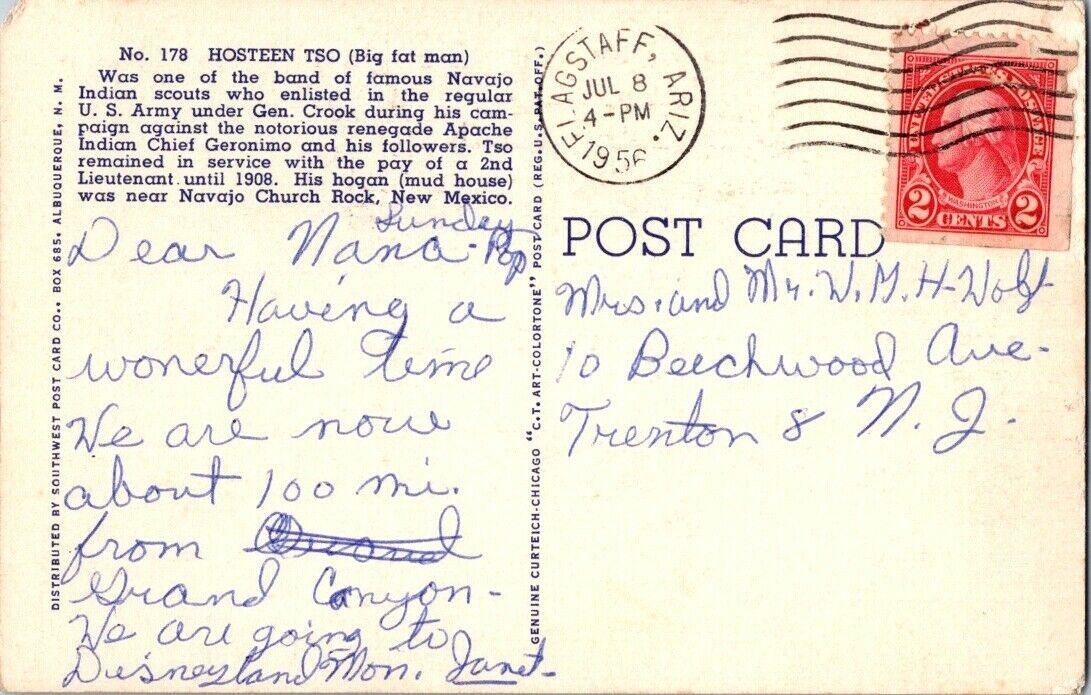 No. 178 HOSTEEN TSO (Big fat man)
Was one of the band of famous Navajo
Indian scouts who enlisted in the regular
U. S. Army under Gen. Crook during his cam-
paign against the notorious renegade Apache
Indian Chief Geronimo and his followers. Tso
remained in service with the pay of a 2nd
Lieutenant until 1908. His hogan (mud house)
was near Navajo Church Rock, New Mexico.
Sunday
Dear Nana-Pop
Having a
wonerful time
We are now
about 100 mi.
from
Grand Canyon-
We are going to
Disneyland Mon. Janet-
DISTRIBUTED BY SOUTHWEST POST CARD CO., BOX 685, ALBUQUERQUE, N. M.
GENUINE CURTEICH-CHICAGO "C.T. ART-COLORTONE" POST CARD (REG. U.S. PAT. OFF.)
FLAGSTAFF, ARIZ.
JUL 8
4-PM
1956
UNITED STATES POSTAGE
WASHINGTON
2 CENTS 2
POST CARD
Mrs. and Mr. W. M. H-Wolf
10 Beechwood Ave-
Trenton 8 N. J.